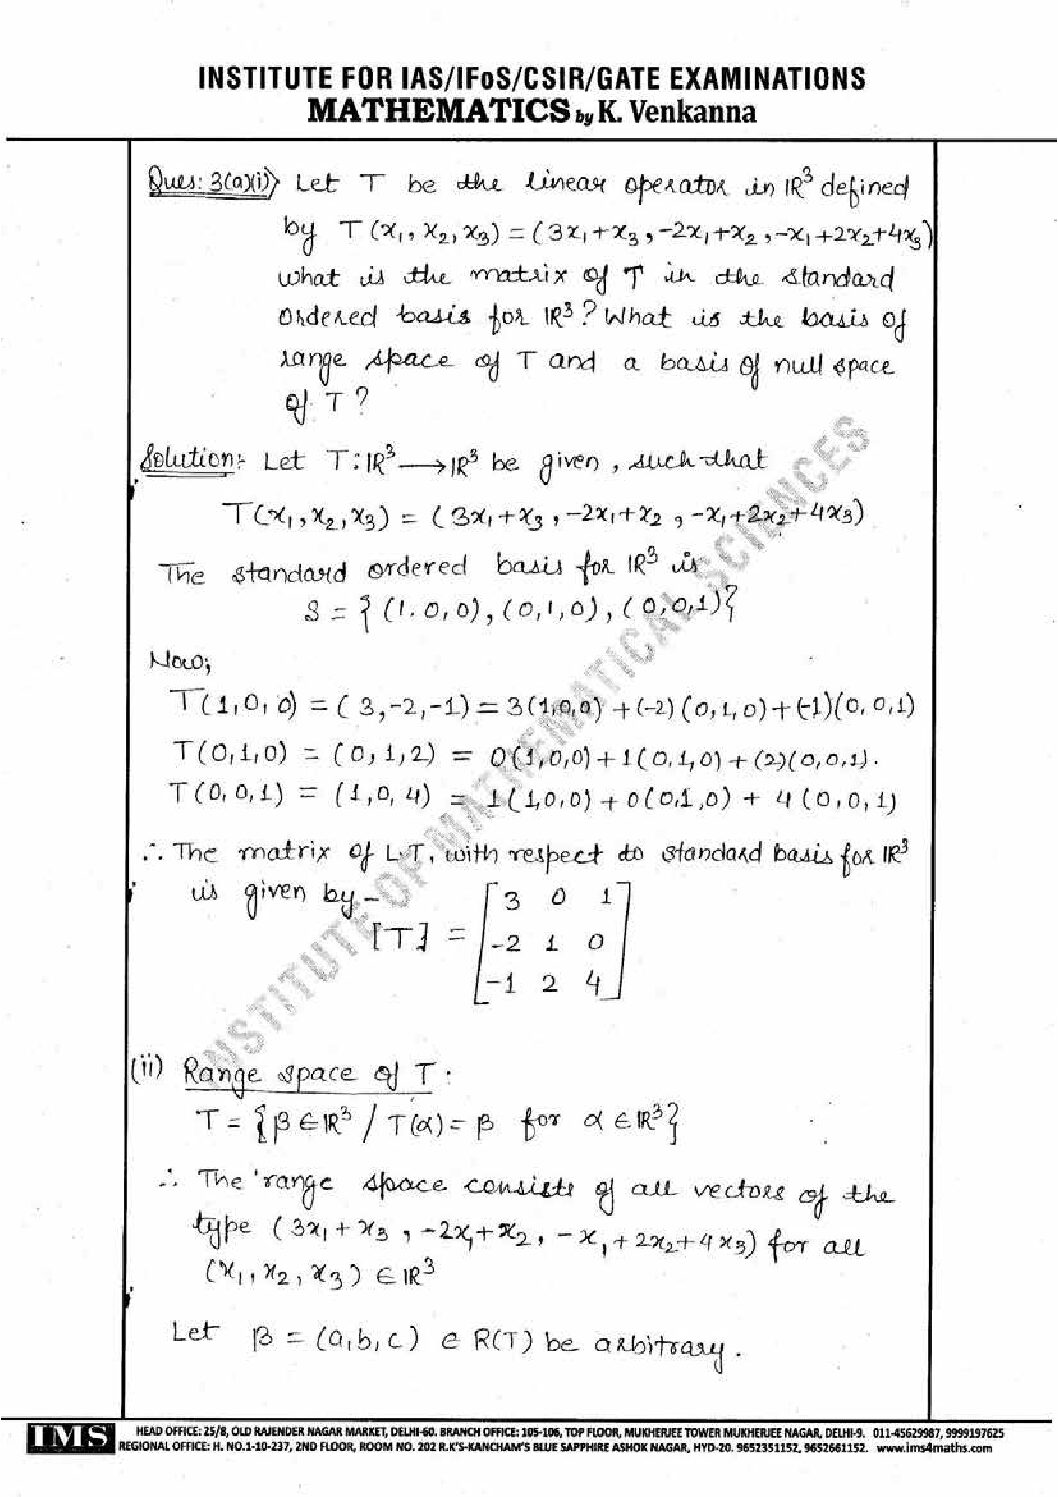 INSTITUTE FOR IAS/IFoS/CSIR/GATE EXAMINATIONS
MATHEMATICS by K. Venkanna
Ques: 3(a)(i)) Let T be the linear operator in IR³ defined
by T(x₁, x₂, x₃) = (3x₁+x₃, -2x₁+x₂, -x₁+2x₂+4x₃)
what is the matrix of T in the standard
ordered basis for IR³? What is the basis of
range space of T and a basis of null space
of T?
Solution:- Let T: IR³ → IR³ be given, such that
T(x₁, x₂, x₃) = (3x₁+x₃, -2x₁+x₂, -x₁+2x₂+4x₃)
The standard ordered basis for IR³ is
S = { (1.0,0), (0,1,0), (0,0,1)}
Now;
T(1,0,0) = (3,-2,-1) = 3(1,0,0) + (-2)(0,1,0) + (-1)(0,0,1)
T(0,1,0) = (0,1,2) = 0(1,0,0) + 1(0,1,0) + (2)(0,0,1).
T(0,0,1) = (1,0,4) = 1(1,0,0) + 0(0,1,0) + 4(0,0,1)
∴ The matrix of L.T. with respect to standard basis for IR³
is given by -
[T] = [3 0 1
-2 1 0
-1 2 4]
(ii) Range space of T:
T = {β ∈ IR³ / T(α) = β for α ∈ IR³}
∴ The range space consists of all vectors of the
type (3x₁+x₃, -2x₁+x₂, -x₁+2x₂+4x₃) for all
(x₁, x₂, x₃) ∈ IR³
Let β = (a,b,c) ∈ R(T) be arbitrary.
INSTITUTE OF MATHEMATICAL SCIENCES
IMS
HEAD OFFICE: 25/8, OLD RAJENDER NAGAR MARKET, DELHI-60. BRANCH OFFICE: 105-106, TOP FLOOR, MUKHERJEE TOWER MUKHERJEE NAGAR, DELHI-9. 011-45629987, 9999197625
REGIONAL OFFICE: H. NO.1-10-237, 2ND FLOOR, ROOM NO. 202 R.K'S-KANCHAM'S BLUE SAPPHIRE ASHOK NAGAR, HYD-20. 9652351152, 9652661152. www.ims4maths.com